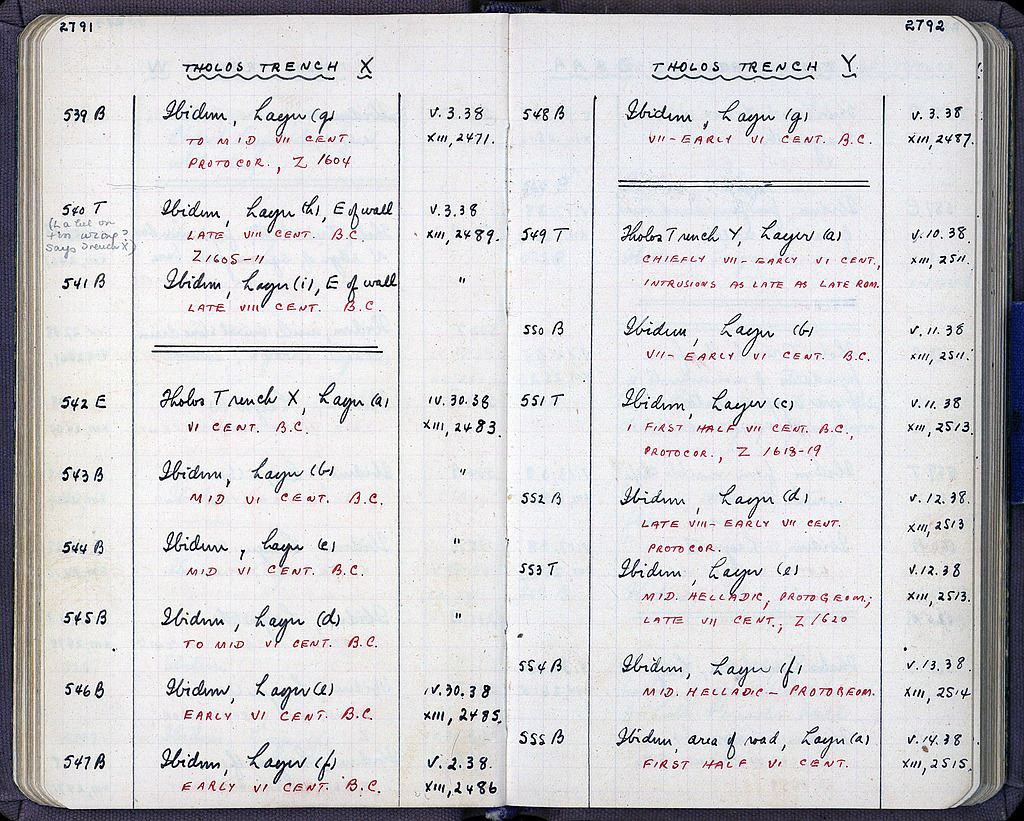 2791
THOLOS TRENCH X
539 B Ibidem, Layer (g) V.3.38
TO MID VII CENT. XIII, 2471.
PROTOCOR., Z 1604
540 T Ibidem, Layer (h), E of wall V.3.38
(Label on tin wrong? says Trench X)
LATE VIII CENT. B.C. XIII, 2489.
Z 1605-11
541 B Ibidem, Layer (i), E of wall "
LATE VIII CENT. B.C.
542 E Tholos Trench X, Layer (a) IV.30.38
VI CENT. B.C. XIII, 2483.
543 B Ibidem, Layer (b) "
MID VI CENT. B.C.
544 B Ibidem, Layer (c) "
MID VI CENT. B.C.
545 B Ibidem, Layer (d) "
TO MID VI CENT. B.C.
546 B Ibidem, Layer (e) IV.30.38
EARLY VI CENT. B.C. XIII, 2485.
547 B Ibidem, Layer (f) V.2.38
EARLY VI CENT. B.C. XIII, 2486
2792
THOLOS TRENCH Y
548 B Ibidem, Layer (g) V.3.38
VII-EARLY VI CENT. B.C. XIII, 2487.
549 T Tholos Trench Y, Layer (a) V.10.38
CHIEFLY VII-EARLY VI CENT., XIII, 2511.
INTRUSIONS AS LATE AS LATE ROM.
550 B Ibidem, Layer (b) V.11.38
VII-EARLY VI CENT. B.C. XIII, 2511.
551 T Ibidem, Layer (c) V.11.38
FIRST HALF VII CENT. B.C., XIII, 2513.
PROTOCOR., Z 1613-19
552 B Ibidem, Layer (d) V.12.38.
LATE VIII-EARLY VII CENT. XIII, 2513
PROTOCOR.
553 T Ibidem, Layer (e) V.12.38
MID. HELLADIC, PROTOGEOM.; XIII, 2513.
LATE VII CENT.; Z 1620
554 B Ibidem, Layer (f) V.13.38.
MID. HELLADIC - PROTOGEOM. XIII, 2514
555 B Ibidem, area of road, Layer (a) V.14.38
FIRST HALF VI CENT. XIII, 2515.